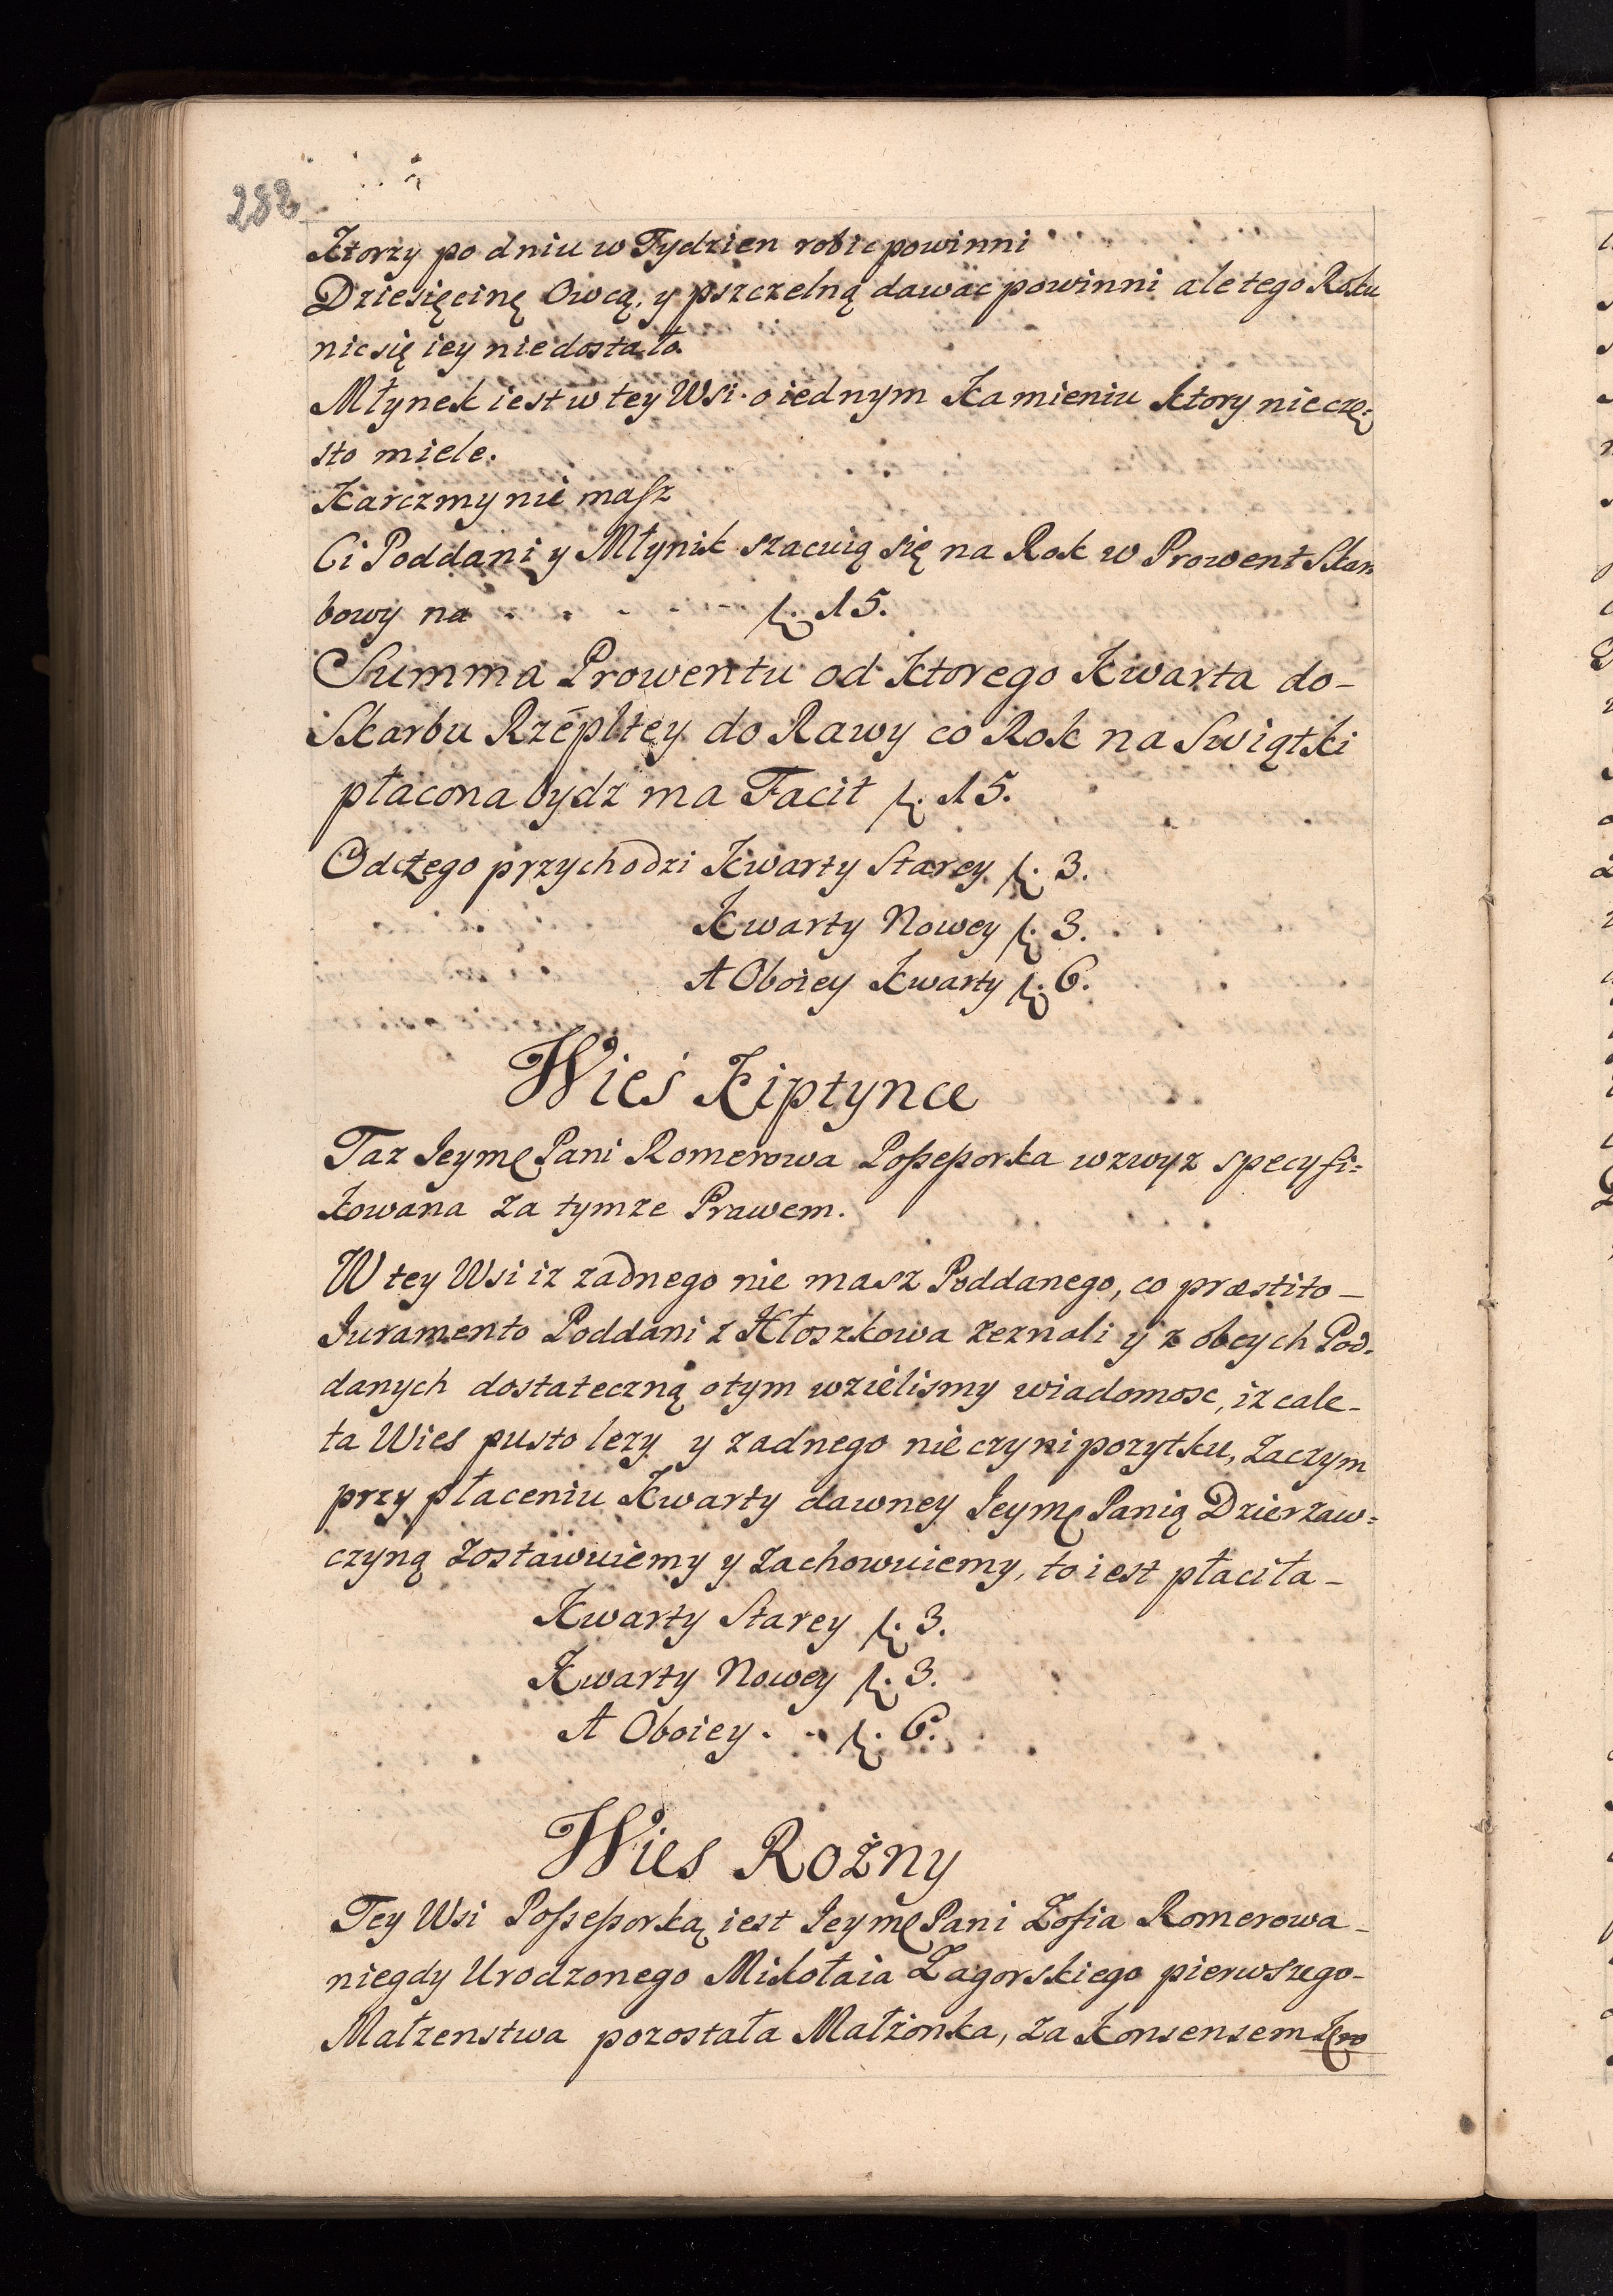 282
Ktorzy po dniu w Tydzien robic powinni
Dziesięcinę Owcą, y pszczelną dawac powinni ale tego Roku
nic się iey nie dostało.
Młynek iest w tey Wsi o iednym Kamieniu Ktory nie czę=
sto miele.
Karczmy nie masz
Ci Poddani y Młynik szacuią się na Rok w Prowent Skar
bowy na - - - - - - f. 15.
Summa Prowentu od Ktorego Kwarta do -
Skarbu Rzeplitey do Rawy co Rok na Swiątki
płacona bydz ma Facit f. 15.
Od tego przychodzi Kwarty Starey f. 3.
Kwarty Nowey f. 3.
A Oboiey Kwarty f. 6.
Wieś Kiptynce
Taz Jeyme Pani Romerowa Possessorka wzwyz specyfi=
kowana za tymze Prawem.
W tey Wsi iz zadnego nie masz Poddanego, co præstito -
Juramento Poddani z Kłoszkowa zeznali y z obcych Pod=
danych dostateczną o tym wzielismy wiadomosc, iz cale -
ta Wies pusto lezy y zadnego nie czyni pozytku, zaczym
przy płaceniu Kwarty dawney Jeyme Panią Dzierzaw=
czyną zostawuiemy y zachowuiemy, to iest płaciła -
Kwarty Starey f. 3.
Kwarty Nowey f. 3.
A Oboiey. - f. 6.
Wies Rożny
Tey Wsi Possessorką iest Jeyme Pani Zofia Romerowa -
niegdy Urodzonego Mikołaia Zagorskiego pierwszego -
Małzenstwa pozostała Małżonka, za Konsensem Kro